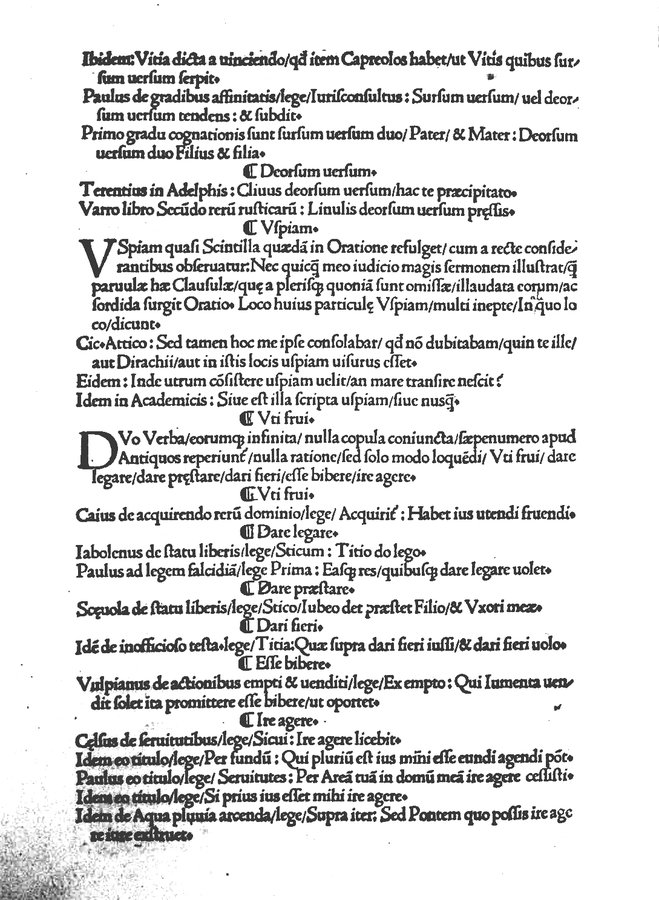 Ibidem: Vitia dicta a uinciendo/qđ item Capreolos habet/ut Vitis quibus sur⸗
sum uersum serpit.
Paulus de gradibus affinitatis/lege/Iurisconsultus: Sursum uersum/ uel deor⸗
sum uersum tendens: & subdit.
Primo gradu cognationis sunt sursum uersum duo/ Pater/ & Mater: Deorsum
uersum duo Filius & filia.
¶ Deorsum uersum.
Terentius in Adelphis: Cliuus deorsum uersum/hac te præcipitato.
Varro libro Secūdo rerū rusticarū: Linulis deorsum uersum pręssis.
¶ Vspiam.
VSpiam quasi Scintilla quædā in Oratione refulget/ cum a recte conside⸗
rantibus obseruatur: Nec quicq̄ meo iudicio magis sermonem illustrat/q̄
paruulæ hæ Clausulæ/quę a plerisq; quoniā sunt omissæ/illaudata eorum/ac
sordida surgit Oratio. Loco huius particulę Vspiam/multi inepte/In quo lo
co/dicunt.
Cic. Attico: Sed tamen hoc me ipse consolabar/ qđ nō dubitabam/quin te ille/
aut Dirachii/aut in istis locis uspiam uisurus esset.
Eidem: Inde utrum cōsistere uspiam uelit/an mare transire nescit?
Idem in Academicis: Siue est illa scripta uspiam/siue nusq̄.
¶ Vti frui.
DVo Verba/eorumq; infinita/ nulla copula coniuncta/sæpenumero apud
Antiquos reperiunt᷑/nulla ratione/sed solo modo loquēdi/ Vti frui/ dare
legare/dare pręstare/dari fieri/esse bibere/ire agere.
¶ Vti frui.
Caius de acquirendo rerū dominio/lege/ Acquirit᷑: Habet ius utendi fruendi.
¶ Dare legare.
Iabolenus de statu liberis/lege/Sticum: Titio do lego.
Paulus ad legem falcidiā/lege Prima: Easq; res/quibusq; dare legare uolet.
¶ Dare præstare.
Scęuola de statu liberis/lege/Stico/Iubeo det præstet Filio/& Vxori meæ.
¶ Dari fieri.
Idē de inofficioso testa.lege/Titia: Quæ supra dari fieri iussi/& dari fieri uolo.
¶ Esse bibere.
Vulpianus de actionibus empti & uenditi/lege/Ex empto: Qui Iumenta uen⸗
dit solet ita promittere esse bibere/ut oportet.
¶ Ire agere.
Cęlsus de seruitutibus/lege/Sicui: Ire agere licebit.
Idem eo titulo/lege/Per fundū: Qui pluriū est ius mīni esse eundi agendi pōt.
Paulus eo titulo/lege/ Seruitutes: Per Areā tuā in domū meā ire agere cessisti.
Idem eo titulo/lege/Si prius ius esset mihi ire agere.
Idem de Aqua pluuia arcenda/lege/Supra iter: Sed Pontem quo possis ire age
re iure exstruet.